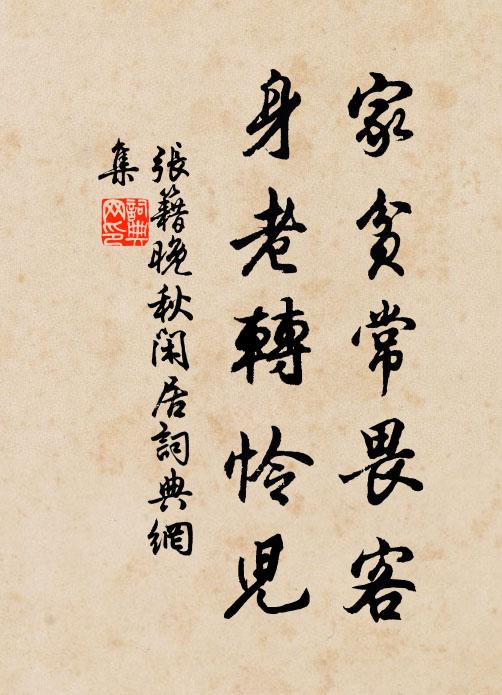 家貧常畏客
身老轉怜兒
張籍晚秋閑居詞典網
集
詞典
网印